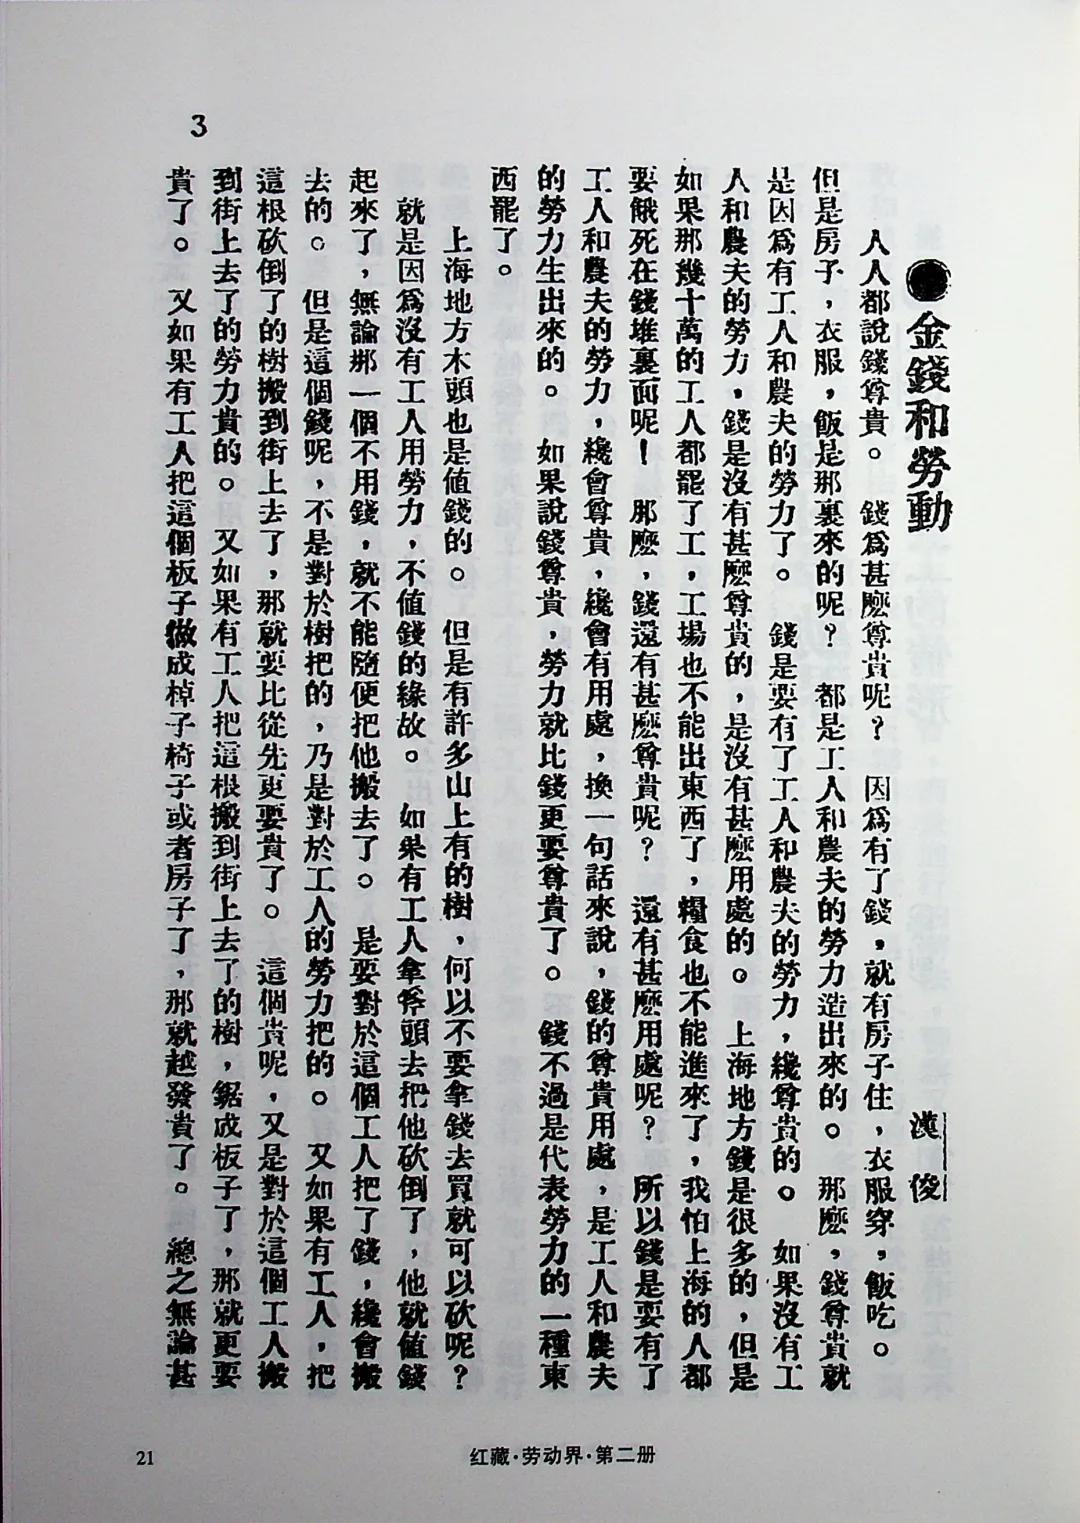 3
金錢和勞動
漢俊
人人都說錢尊貴。錢爲甚麼尊貴呢？因爲有了錢，就有房子住，衣服穿，飯吃。
但是房子，衣服，飯是那裏來的呢？都是工人和農夫的勞力造出來的。那麼，錢尊貴就
是因爲有工人和農夫的勞力了。錢是要有了工人和農夫的勞力，纔尊貴的。如果沒有工
人和農夫的勞力，錢是沒有甚麼尊貴的，是沒有甚麼用處的。上海地方錢是很多的，但是
如果那幾十萬的工人都罷了工，工場也不能出東西了，糧食也不能進來了，我怕上海的人都
要餓死在錢堆裏面呢！那麼，錢還有甚麼尊貴呢？還有甚麼用處呢？所以錢是要有了
工人和農夫的勞力，纔會尊貴，纔會有用處，換一句話來說，錢的尊貴用處，是工人和農夫
的勞力生出來的。如果說錢尊貴，勞力就比錢更要尊貴了。錢不過是代表勞力的一種東
西罷了。
上海地方木頭也是値錢的。但是有許多山上有的樹，何以不要拿錢去買就可以砍呢？
就是因爲沒有工人用勞力，不値錢的緣故。如果有工人拿斧頭去把他砍倒了，他就値錢
起來了，無論那一個不用錢，就不能隨便把他搬去了。是要對於這個工人把了錢，纔會搬
去的。但是這個錢呢，不是對於樹把的，乃是對於工人的勞力把的。又如果有工人，把
這根砍倒了的樹搬到街上去了，那就要比從先更要貴了。這個貴呢，又是對於這個工人搬
到街上去了的勞力貴的。又如果有工人把這根搬到街上去了的樹，鋸成板子了，那就更要
貴了。又如果有工人把這個板子做成棹子椅子或者房子了，那就越發貴了。總之無論甚
21
红藏·劳动界·第二册